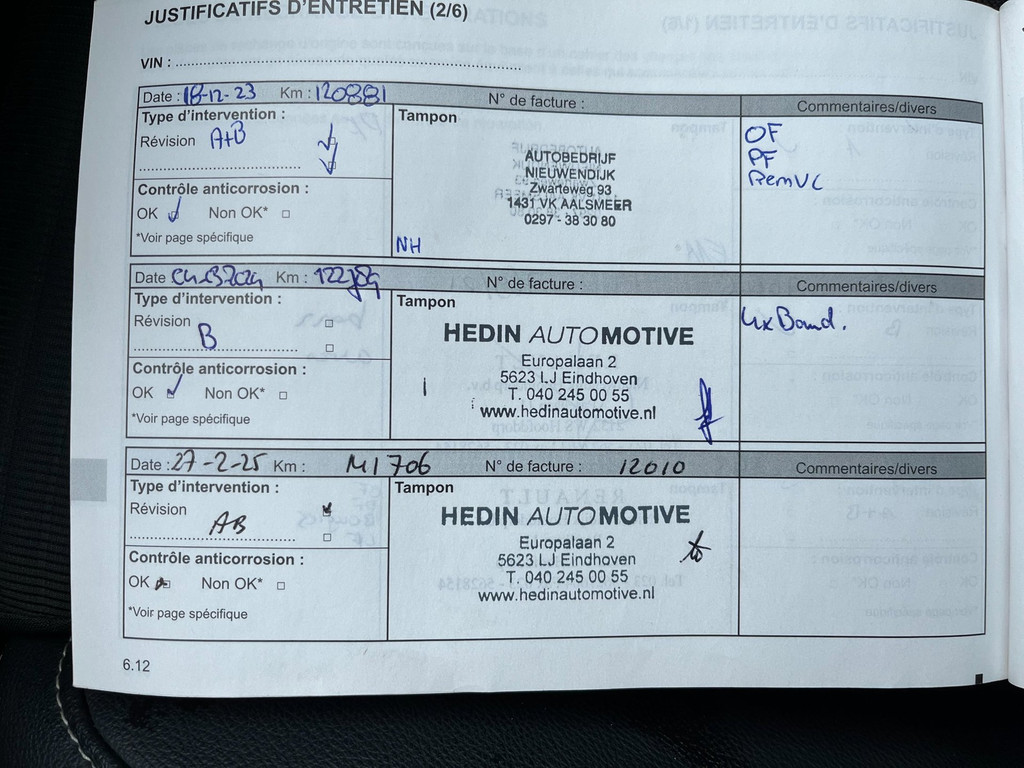 JUSTIFICATIFS D'ENTRETIEN (2/6)
VIN :
Date : 18-12-23 Km : 120881 N° de facture : Commentaires/divers
Type d'intervention :
Révision A+B
Contrôle anticorrosion :
OK Non OK*
*Voir page spécifique
Tampon
AUTOBEDRIJF
NIEUWENDIJK
Zwarteweg 93
1431 VK AALSMEER
0297 - 38 30 80
NH
OF
PF
RemVL
Date Km : N° de facture : Commentaires/divers
Type d'intervention :
Révision
B
Contrôle anticorrosion :
OK Non OK*
*Voir page spécifique
Tampon
HEDIN AUTOMOTIVE
Europalaan 2
5623 LJ Eindhoven
T. 040 245 00 55
www.hedinautomotive.nl
4x Band.
Date : 27-2-25 Km : N° de facture : 12010 Commentaires/divers
Type d'intervention :
Révision
AB
Contrôle anticorrosion :
OK Non OK*
*Voir page spécifique
Tampon
HEDIN AUTOMOTIVE
Europalaan 2
5623 LJ Eindhoven
T. 040 245 00 55
www.hedinautomotive.nl
6.12